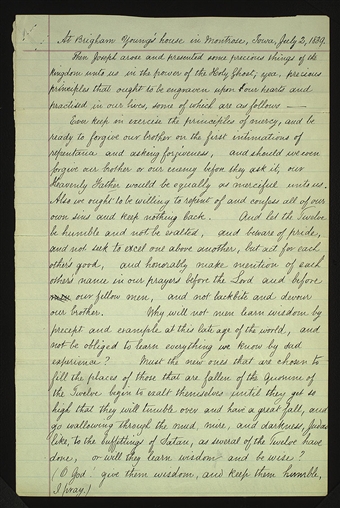 At Brigham Young's house in Montrose, Iowa, July 2, 1839.
Then Joseph arose and presented some precious things of the
kingdom unto us in the power of the Holy Ghost; yea, precious
principles that ought to be engraven upon our hearts and
practised in our lives, some of which are as follows —
Ever keep in exercise the principles of mercy, and be
ready to forgive our brother on the first intimations of
repentance and asking forgiveness, and should we even
forgive our brother or our enemy before they ask it, our
Heavenly Father would be equally as merciful unto us.
Also we ought to be willing to repent of and confess all of our
own sins and keep nothing back. And let the Twelve
be humble and not be exalted, and beware of pride,
and not seek to excel one above another, but act for each
other's good, and honorably make mention of each
other's name in our prayers before the Lord and before
men our fellow men, and not backbite and devour
our brother. Why will not men learn wisdom by
precept and example at this late age of the world, and
not be obliged to learn everything we know by sad
experience? Must the new ones that are chosen to
fill the places of those that are fallen of the Quorum of
the Twelve begin to exalt themselves until they get so
high that they will tumble over and have a great fall, and
go wallowing through the mud, mire, and darkness, Judas
like, to the buffetings of Satan, as several of the Twelve have
done, or will they learn wisdom and be wise?
(O God! give them wisdom, and keep them humble,
I pray.)